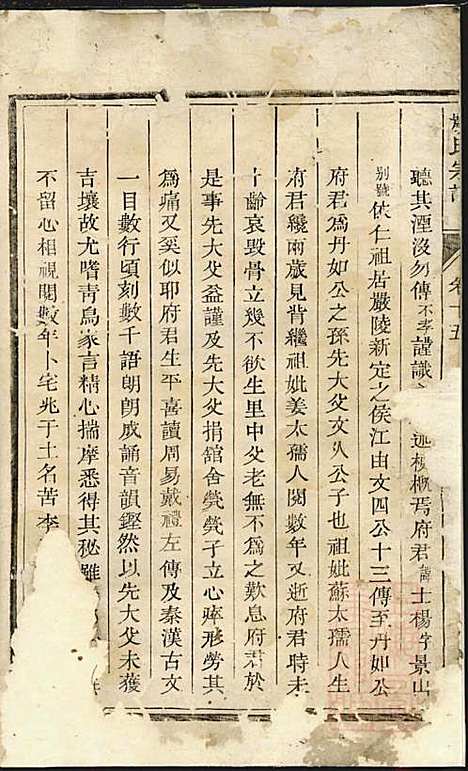 氏宗譜
卷十五
聽其湮沒勿傳不孝謹識 述梗概焉府君諱士楊字景山
別號依仁祖居嚴陵新定之侯江由文四公十三傳至丹如公
府君為丹如公之孫先大父文人公子也祖妣蘇太孺人生
府君纔兩歲見背繼祖妣姜太孺人閱數年又逝府君時未
十齡哀毀骨立幾不欲生里中父老無不為之歎息府君於
是事先大父益謹及先大父捐舘舍煢煢子立心瘁形勞其
為痛又奚似耶府君生平喜讀周易戴禮左傳及秦漢古文
一目數行頃刻數千語朗朗成誦音韻鏗然以先大父未獲
吉壤故尤嗜青烏家言精心揣摩悉得其秘雖
不留心相視閱數年卜宅兆于土名苦李